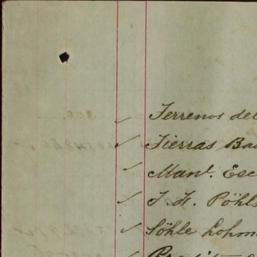 Terrenos del
Tierras Ba
Manl. Esc
J. H. Pöhls
Söhle Lohm